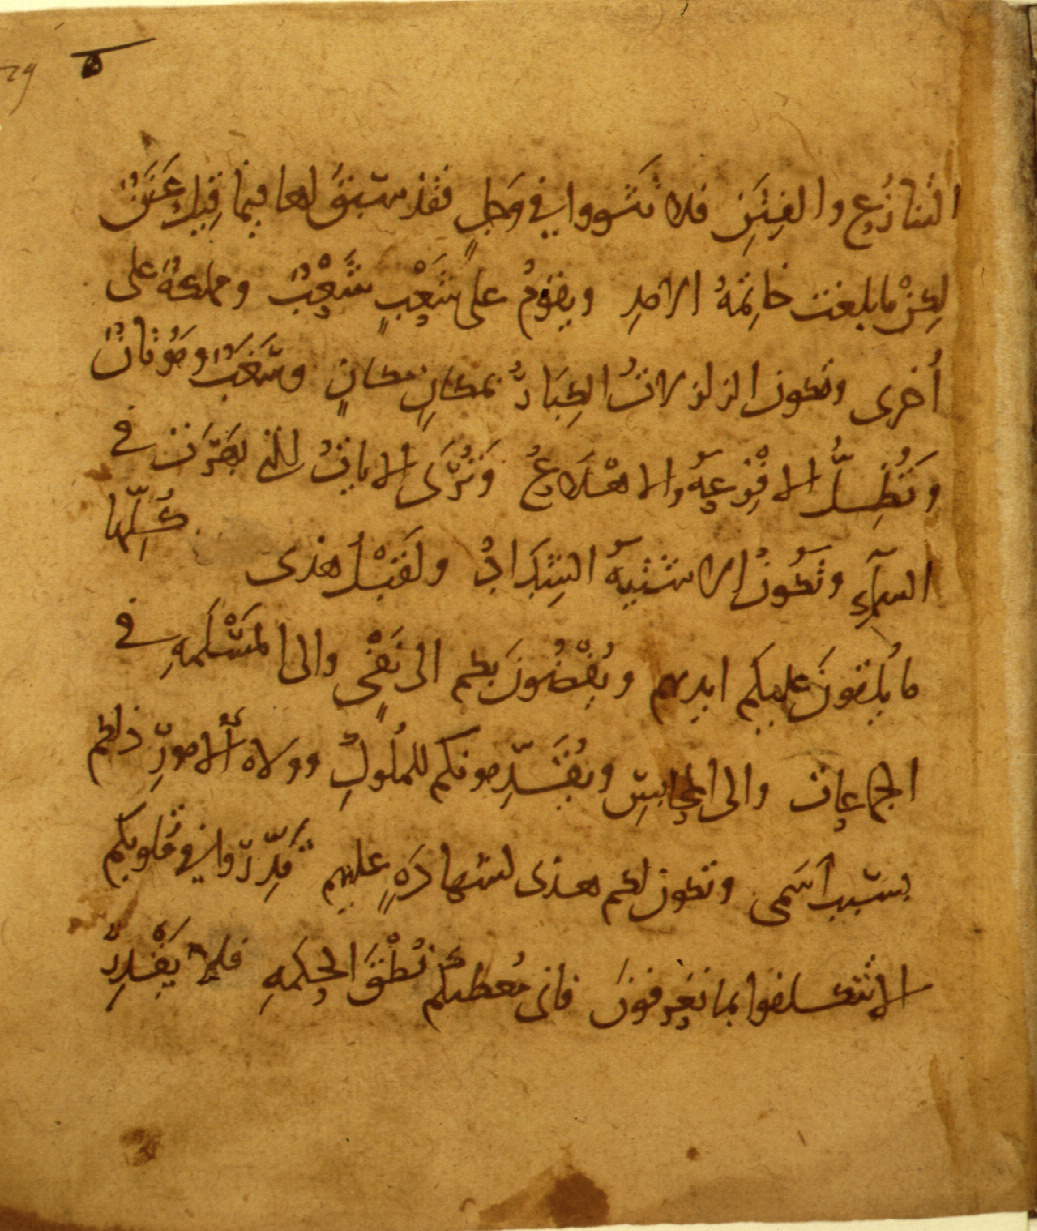 التنازُع والفِتَنِ فلا تكونوا في وَجلٍ فقد سَبَقَ لها فيما قِيلَ عَرَبٌ
لكِنْ ما بلغت خاتِمَةُ الامدِ ويقومُ على شَعْبٍ شَعْبٌ ومملكةٌ على
أُخرى وتكون الزلزلاتُ الكِبَارُ بمكانٍ مكانٍ وسَغَبٌ ومَوْتانٌ
وتُظِلُّ الافْزعةُ والاهْلاعُ وتُرَى الاياتُ التي بَهَرَت في
السمآءِ وتكُونُ الاشتيةُ الشِدَادُ ولَقَبْلُ هذى كُلِّها
ما يُلقونَ عليكم ايديهم ويُفْضُونَ بكم الى نَفْيٍ والى المَسْلَمةِ في
الجماعات والى المحابِسِ ويُقَدِّمونكم للملُوكِ وولاه الأُمورِ ذلكم
بسَبب اسَمى وتكون لكم هذى لشهادَةٍ عليهم فَقِرّرُوا في قُلوبكم
الا تتكلفوا بما تَعرِفونَ فانى مُعطيكم نُطْقَ الحِكمةِ فلا يَقْدِرُ